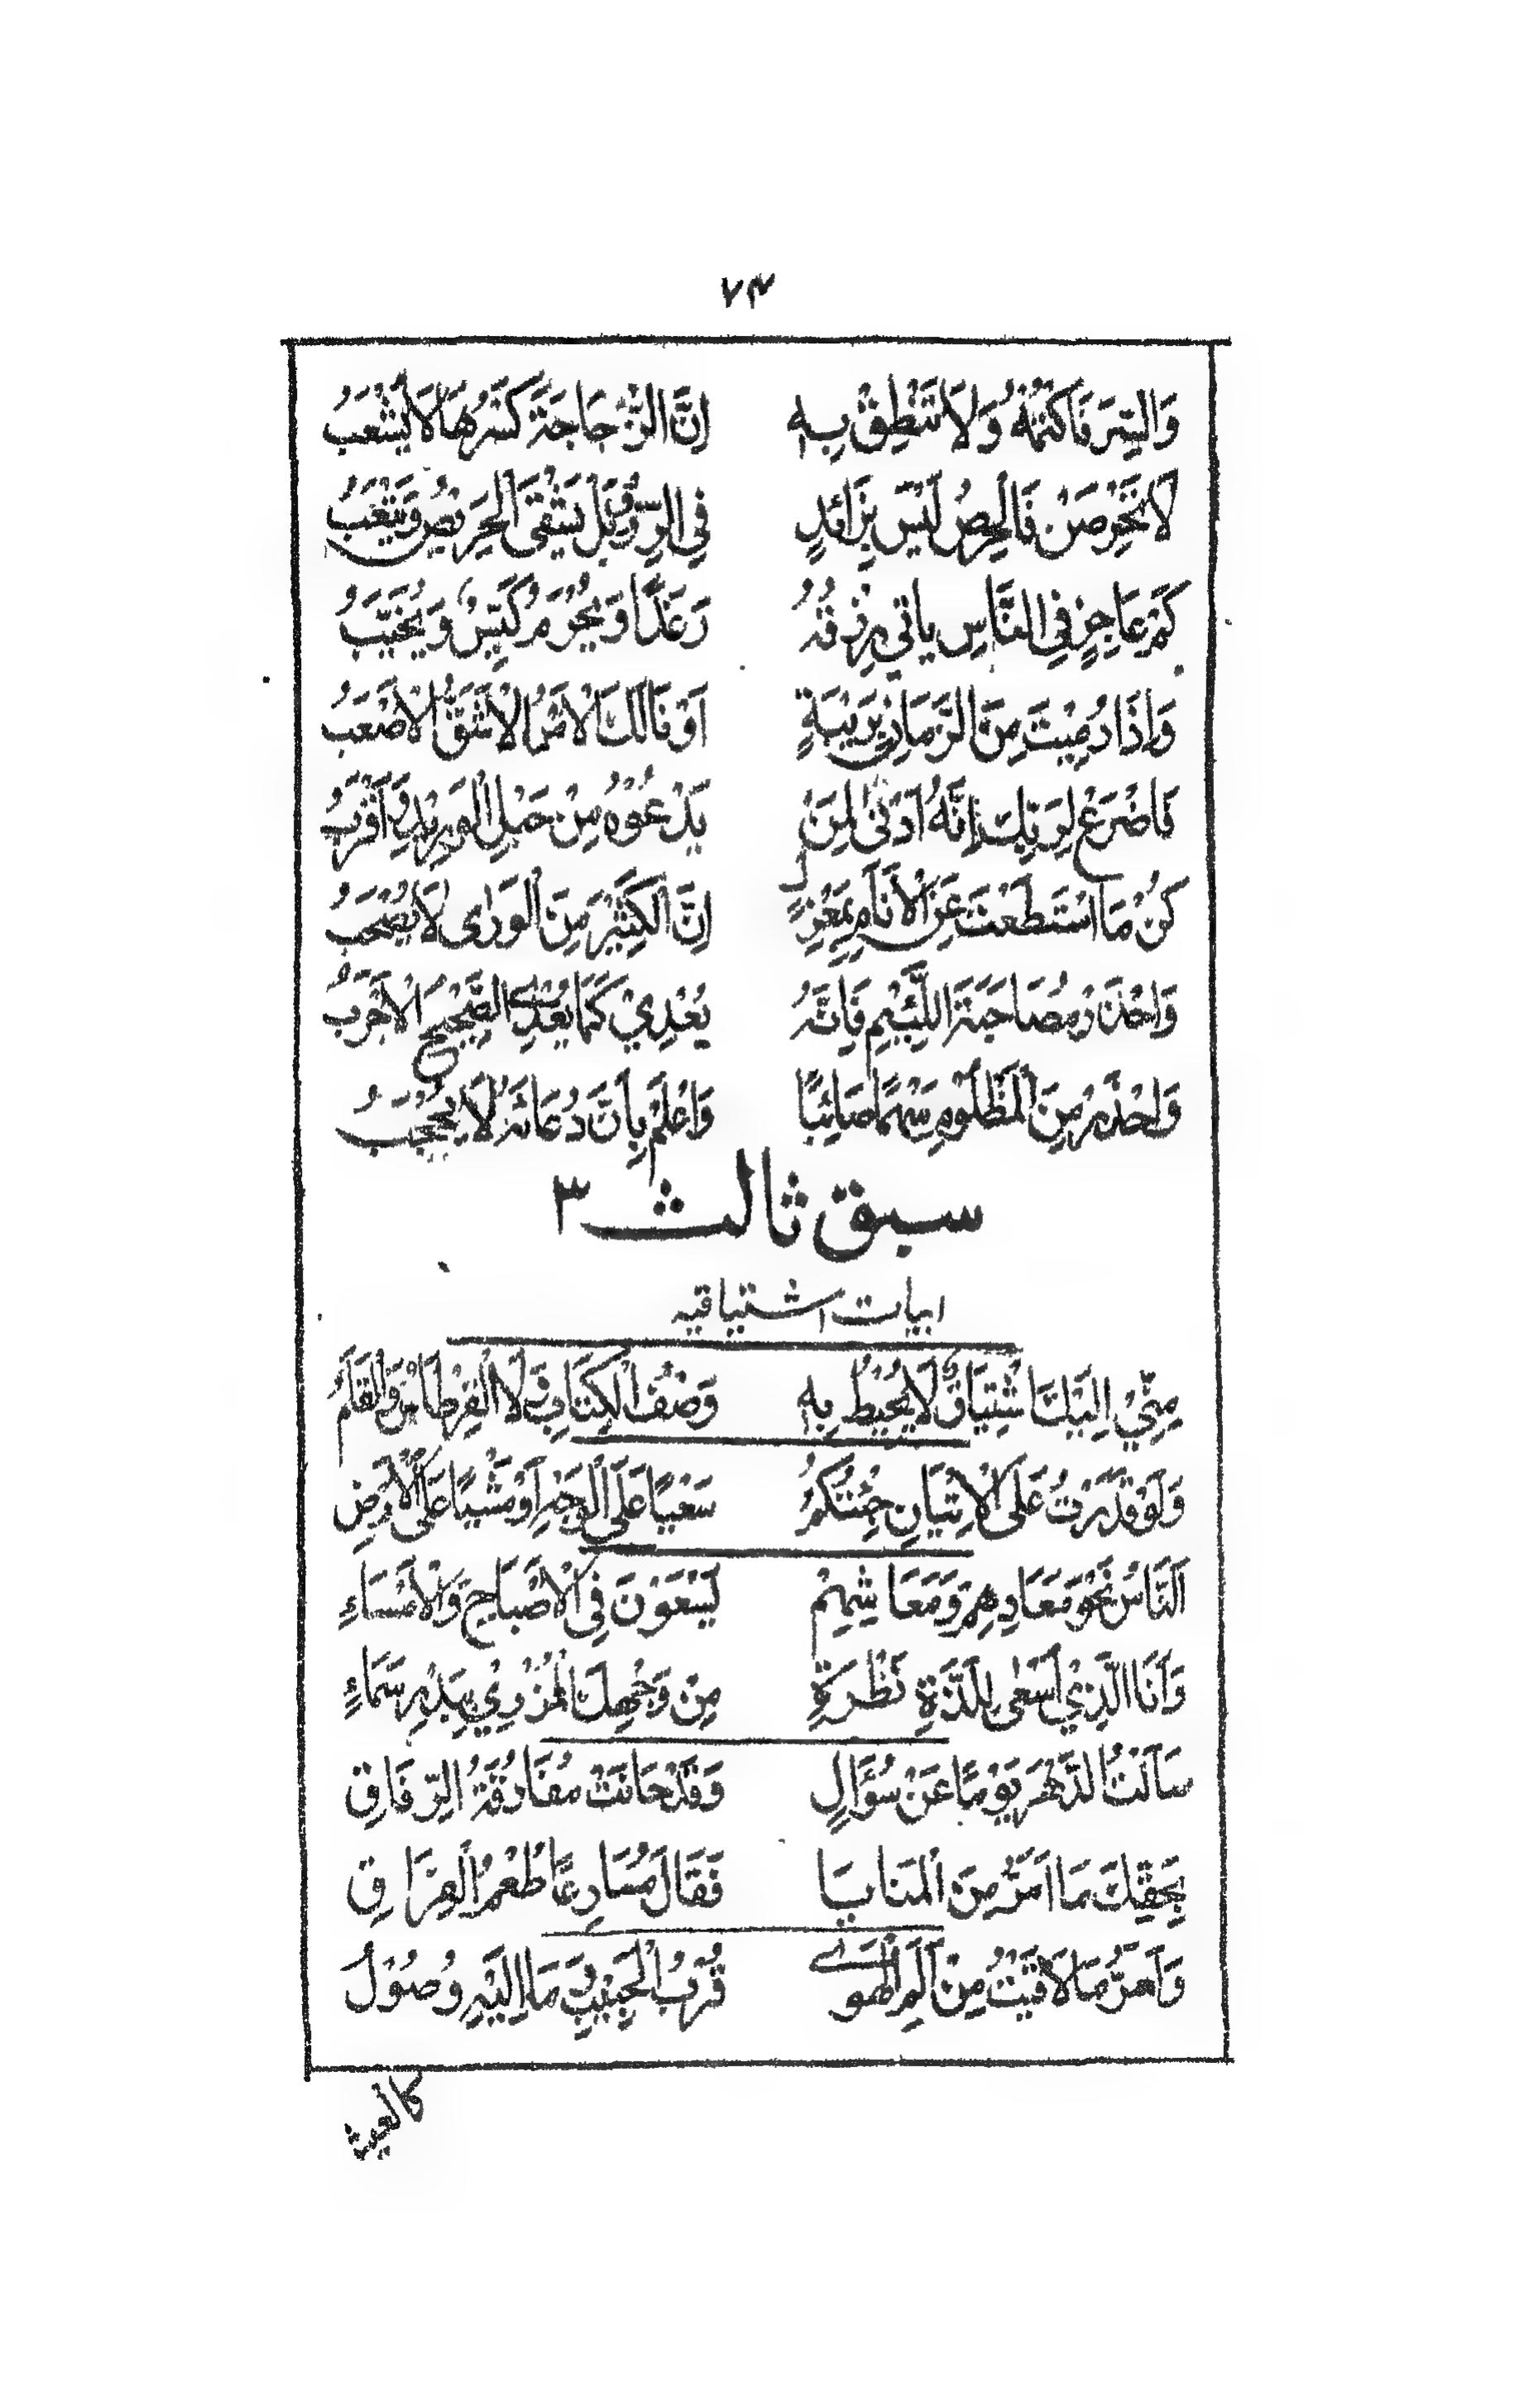 ۷۴
وَالسِّرَ فَاكْتُمْهُ وَلَا تَنْطِقْ بِهٖ اِنَّ الزُّجَاجَةَ كَسْرُهَا لَا يُشْعَبُ
لَا تَحْرِصَنْ فَالْحِرْصُ لَيْسَ بِزَائِدٍ فِي الرِّزْقِ بَلْ يَشْقَى الْحَرِيْصُ وَيَتْعَبُ
كَمْ عَاجِزٍ فِي النَّاسِ يَاتِي رِزْقُهُ رَغَدًا وَيُحْرَمُ كَيِّسٌ وَيُخَيَّبُ
وَاِذَا رُمِيْتَ مِنَ الزَّمَانِ بِرَيْبَةٍ اَوْ نَالَكَ الْاَمْرُ الْاَشَقُّ الْاَصْعَبُ
فَاضْرَعْ لِرَبِّكَ اِنَّهُ اَدْنٰى لِمَنْ يَدْعُوْهُ مِنْ حَبْلِ الْوَرِيْدِ وَاَقْرَبُ
كُنْ مَا اسْتَطَعْتَ عَنِ الْاَنَامِ بِمَعْزِلٍ اِنَّ الْكَثِيْرَ مِنَ الْوَرٰى لَا يُصْحَبُ
وَاحْذَرْ مُصَاحَبَةَ اللَّئِيْمِ فَاِنَّهُ يُعْدِيْ كَمَا يُعْدِي الصَّحِيْحَ الْاَجْرَبُ
وَاحْذَرْ مِنَ الْمَظْلُوْمِ سَهْمًا صَائِبًا وَاعْلَمْ بِاَنَّ دُعَائَهُ لَا يُحْجَبُ
سبق ثالث ۳
ابیات اشتیاقیہ
مِنِّيْ اِلَيْكَ اشْتِيَاقٌ لَا يُحِيْطُ بِهٖ وَصْفُ الْكِتَابِ وَلَا الْقِرْطَاسُ وَالْقَلَمُ
وَلَوْ قَدَرْتُ عَلَى الْاِتْيَانِ جِئْتُكُمُ سَعْيًا عَلَى الْوَجْهِ اَوْ مَشْيًا عَلَى الْاَرْضِ
اَلنَّاسُ نَحْوَ مَعَادِهِمْ وَمَعَاشِهِمْ يَسْعَوْنَ فِي الْاَصْبَاحِ وَالْاَمْسَاءِ
وَاَنَا الَّذِيْ اَسْعٰى لِلَذَّةِ نَظْرَةٍ مِنْ وَجْهِكَ الْمُزْرِيْ بِبَدْرِ سَمَاءِ
سَاَلْتُ الدَّهْرَ يَوْمًا عَنْ سُؤَالٍ وَقَدْ حَانَتْ مُفَارَقَةُ الرِّفَاقِ
بِحَقِّكَ مَا اَمَرُّ مِنَ الْمَنَايَا فَقَالَ مُسَارِعًا طُعْمُ الْفِرَاقِ
وَاَمَرُّ مَا لَاقَيْتُ مِنْ اَلَمِ الْهَوٰى قُرْبُ الْحَبِيْبِ وَمَا اِلَيْهِ وُصُوْلُ
كالعيش